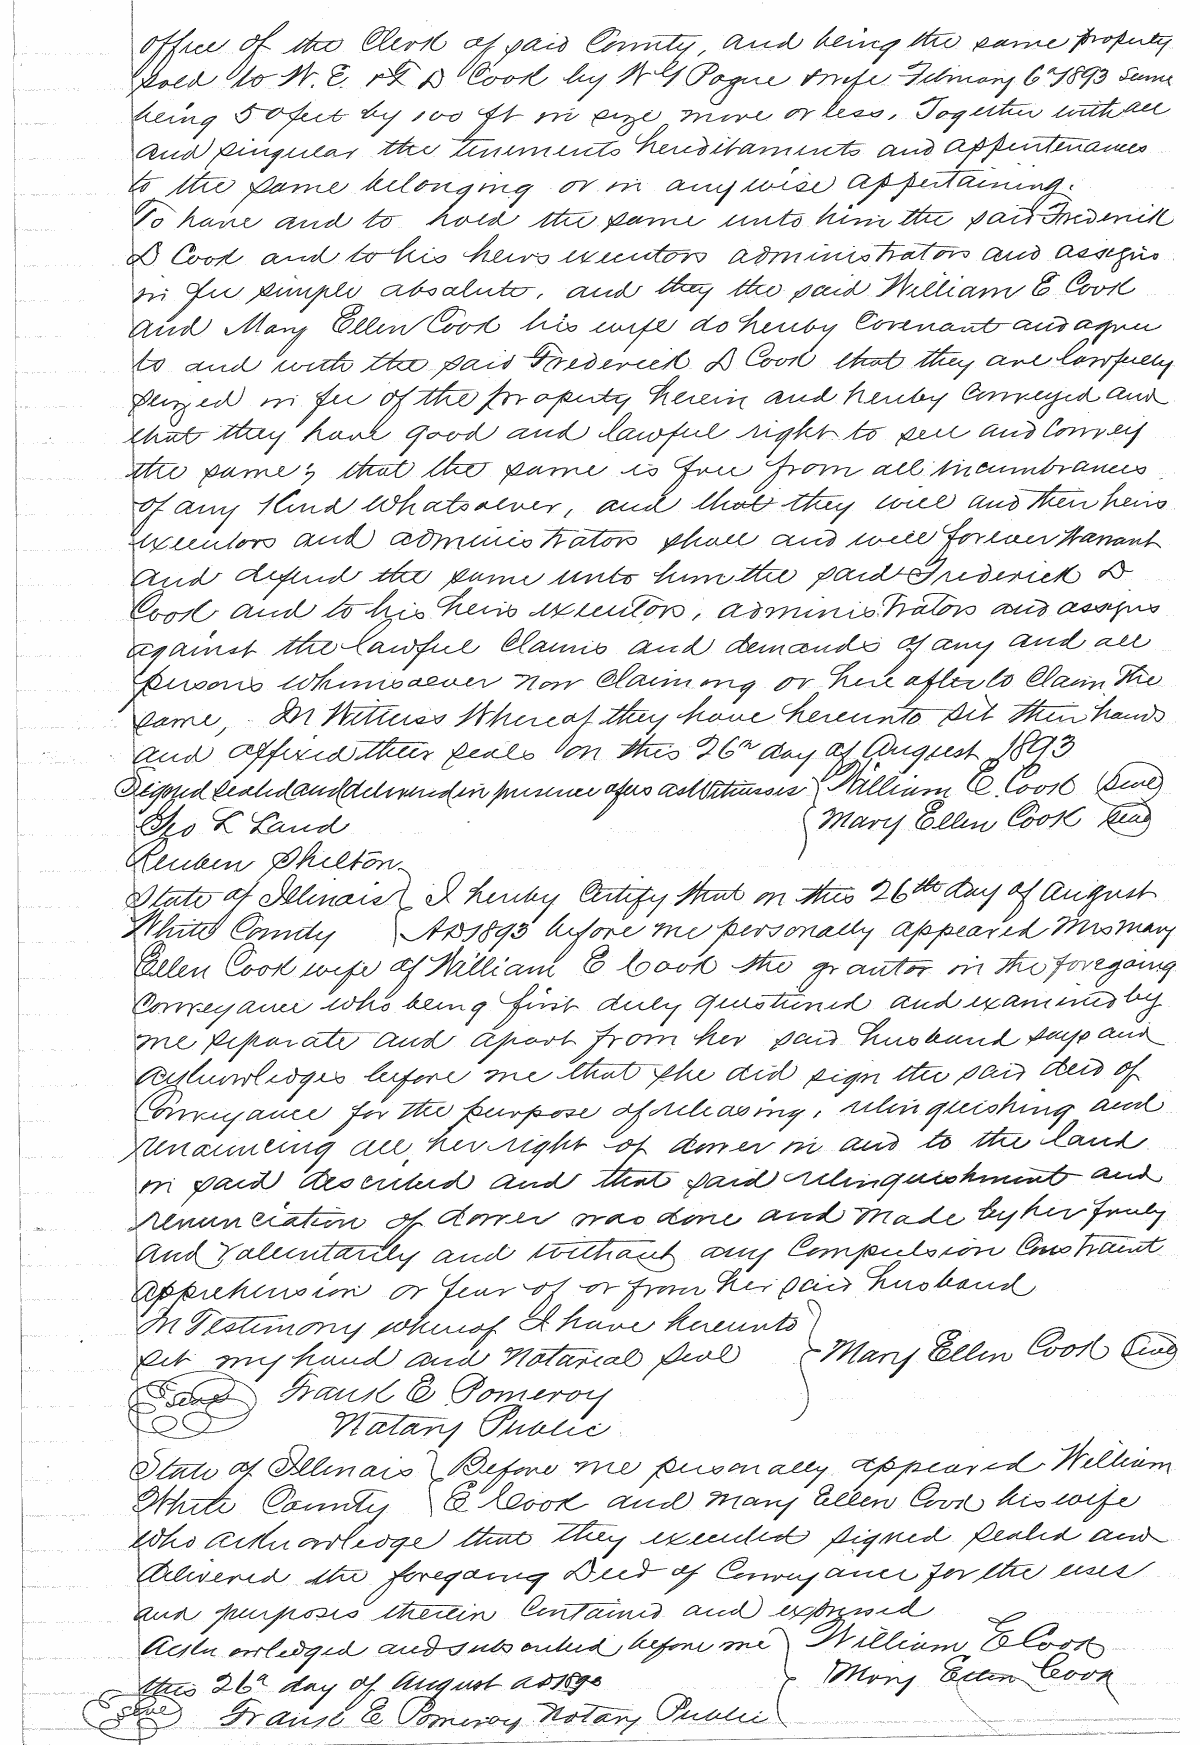 office of the Clerk of said County, and being the same property
sold to W. E. & F D Cook by W G Pogue & wife February 6th 1893 same
being 50 feet by 100 ft in size more or less. Together with all
and singular the tenements hereditaments and appurtenances
to the same belonging or in any wise appertaining.
To have and to hold the same unto him the said Frederick
D Cook and to his heirs executors administrators and assigns
in fee simple absolute. and they the said William E Cook
and Mary Ellen Cook his wife do hereby Covenant and agree
to and with the said Frederick D Cook that they are lawfully
seized in fee of the property herein and hereby Conveyed and
that they have good and lawful right to sell and Convey
the same; that the same is free from all incumbrances
of any Kind Whatsoever, and that they will and their heirs
executors and administrators shall and will forever Warrant
and defend the same unto him the said Frederick D
Cook and to his heirs executors, administrators and assigns
against the lawful Claims and demands of any and all
persons whomsoever now Claiming or here after to Claim the
same, In Witness Whereof they have hereunto set their hands
and affixed their seals on this 26th day of August 1893
Signed sealed and delivered in presence of us as Witnesses William E. Cook Seal
Geo L Land Mary Ellen Cook Seal
Reuben Shelton
State of Illinois I hereby Certify that on this 26th day of August
White County AD 1893 before me personally appeared Mrs Mary
Ellen Cook wife of William E Cook the grantor in the foregoing
Conveyance who being first duly questioned and examined by
me separate and apart from her said husband says and
acknowledges before me that she did sign the said deed of
Conveyance for the purpose of releasing, relinquishing and
renouncing all her right of dower in and to the land
in said described and that said relinquishment and
renunciation of dower was done and made by her freely
and Voluntarily and without any Compulsion Constraint
apprehension or fear of or from her said husband
In Testimony whereof I have hereunto
set my hand and Notarial seal Mary Ellen Cook Seal
Seal Frank E Pomeroy
Notary Public
State of Illinois Before me personally appeared William
White County E Cook and Mary Ellen Cook his wife
who acknowledge that they executed signed sealed and
delivered the foregoing Deed of Conveyance for the uses
and purposes therein Contained and expressed
Acknowledged and subscribed before me William E Cook
this 26th day of August AD 1893 Mary Ellen Cook
Seal Frank E Pomeroy Notary Public